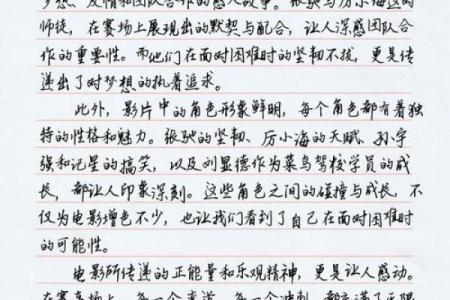 梦想、友情和团队合作的感人故事。张驰与厉小海这对
师徒，在赛场上展现出的默契与配合，让人深感团队合
作的重要性。而他们在面对困难时的坚韧不拔，更是传
递出了对梦想的执着追求。
此外，影片中的角色形象鲜明，每个角色都有着独
特的性格和魅力。张驰的坚韧、厉小海的天赋、孙宇
强和记星的搞笑，以及刘显德作为菜鸟驾校学员的成
长，都让人印象深刻。这些角色之间的碰撞与成长，不
仅为电影增色不少，也让我们看到了自己在面对困难时
的可能性。
电影所传递的正能量和乐观精神，更是让人感动。
在赛车场上，每一个弯道、每一个冲刺，都充满了